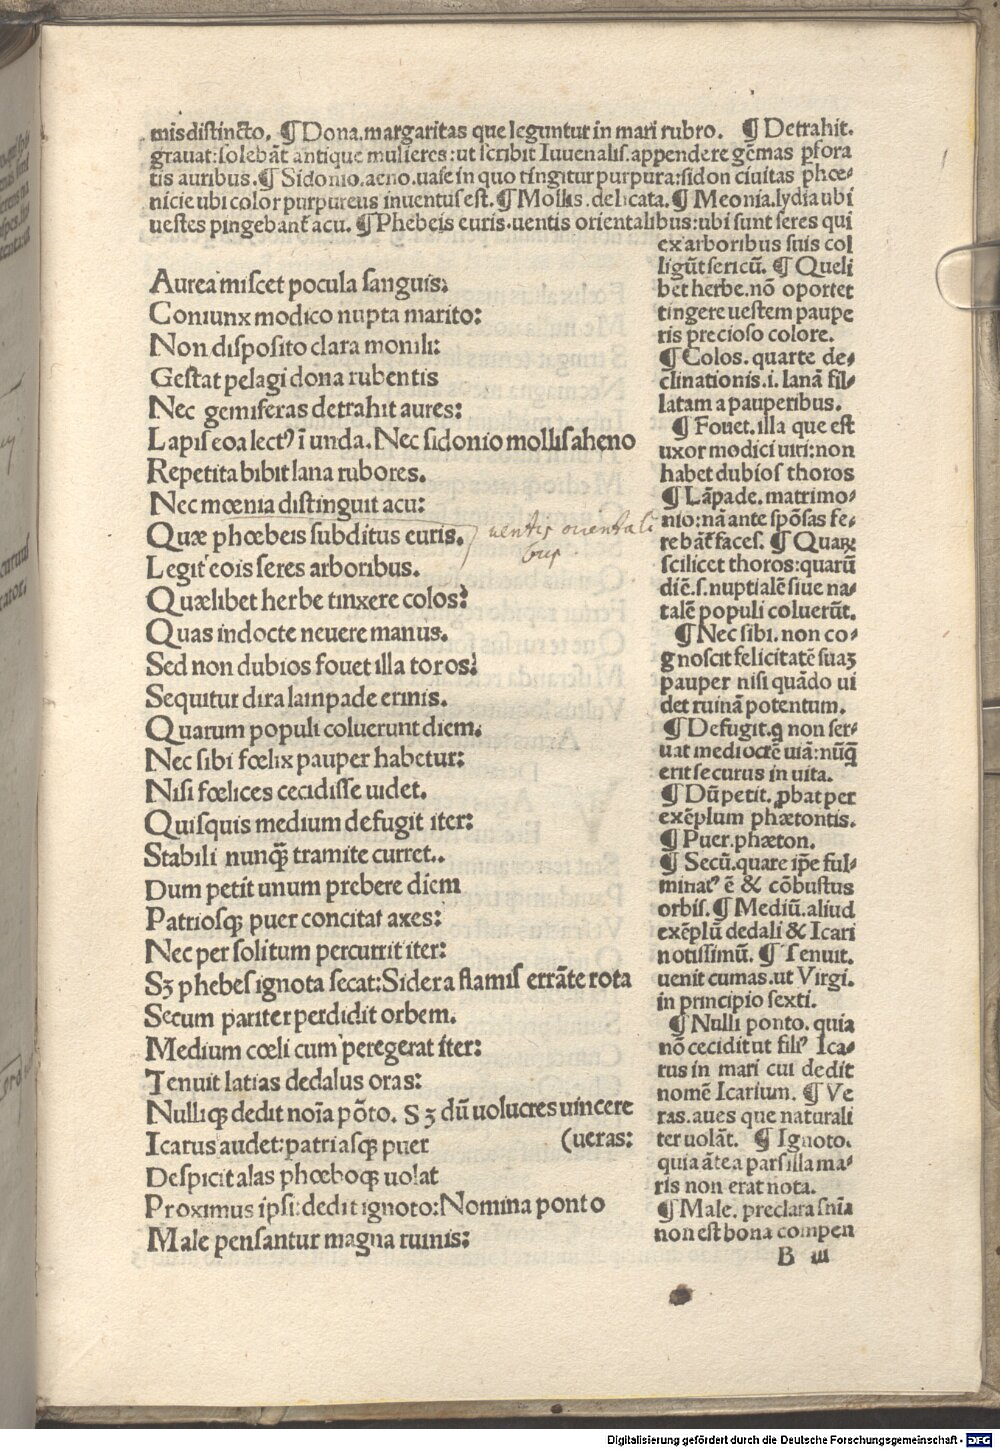 misdistincto. ¶ Dona.margaritas que leguntur in mari rubro. ¶ Detrahit.
grauat:solebãt antique mulieres:ut scribit Iuuenalis.appendere gẽmas ꝑfora
tis auribus. ¶ Sidonio.aeno.uase in quo tingitur purpura:sidon ciuitas phœ-
nicie ubi color purpureus inuentus est. ¶ Mollis.delicata. ¶ Meonia.lydia ubi
uestes pingebant̃ acu. ¶ Phebeis euris.uentis orientalibus:ubi sunt seres qui
ex arboribus suis col
ligũt sericũ. ¶ Queli
bet herbe.nõ oportet
tingere uestem paupe
ris precioso colore.
¶ Colos. quarte de-
clinationis.i. lanã fil-
latam a pauperibus.
¶ Fouet.illa que est
uxor modici uiri:non
habet dubios thoros
¶ Lãpade. matrimo-
nio:nã ante spõsas fe-
rebãt̃ faces. ¶ Quaꝝ
scilicet thoros:quarũ
diẽ.s.nuptialẽ siue na-
talẽ populi coluerũt.
¶ Nec sibi. non co-
gnoscit felicitatẽ suaꝫ
pauper nisi quãdo ui
det ruinã potentum.
¶ Defugit.ꝗ non ser-
uat mediocrẽ uiã:nũꝗ̃
erit securus in uita.
¶ Dũ petit. ꝓbat per
exẽplum phætontis.
¶ Puer.phæton.
¶ Secũ.quare ip̃e ful-
minatꝰ ẽ & cõbustus
orbis. ¶ Mediũ.aliud
exẽplũ dedali & Icari
notissimũ. ¶ Tenuit.
uenit cumas.ut Virgi.
in principio sexti.
¶ Nulli ponto. quia
nõ cecidit ut filiꝰ Ica-
rus in mari cui dedit
nomẽ Icarium. ¶ Ve
ras.aues que naturali
ter uolãt. ¶ Ignoto.
quia ãtea pars illa ma-
ris non erat nota.
¶ Male. preclara snĩa
non est bona compen
Aurea miscet pocula sanguis:
Coniunx modico nupta marito:
Non disposito clara monili:
Gestat pelagi dona rubentis
Nec gemiferas detrahit aures:
Lapis eoa lectꝰ ĩ unda. Nec sidonio mollis aheno
Repetita bibit lana rubores.
Nec mœnia distinguit acu:
Quæ phœbeis subditus euris. uentis orientali
bus
Legit eois seres arboribus.
Quælibet herbe tinxere colos:
Quas indocte neuere manus.
Sed non dubios fouet illa toros:
Sequitur dira lampade erinis.
Quarum populi coluerunt diem.
Nec sibi fœlix pauper habetur:
Nisi fœlices cecidisse uidet.
Quisquis medium defugit iter:
Stabili nunꝗ̃ tramite curret..
Dum petit unum prebere diem
Patriosqꝫ puer concitat axes:
Nec per solitum percurrit iter:
Sꝫ phebes ignota secat:Sidera flamis errãte rota
Secum pariter perdidit orbem.
Medium cœli cum peregerat iter:
Tenuit latias dedalus oras:
Nulliqꝫ dedit noĩa põto. Sꝫ dũ uolucres uincere
Icarus audet:patriasqꝫ puer (ueras:
Despicit alas phœboqꝫ uolat
Proximus ipsi:dedit ignoto:Nomina ponto
Male pensantur magna ruinis:
B iii
Digitalisierung gefördert durch die Deutsche Forschungsgemeinschaft - DFG